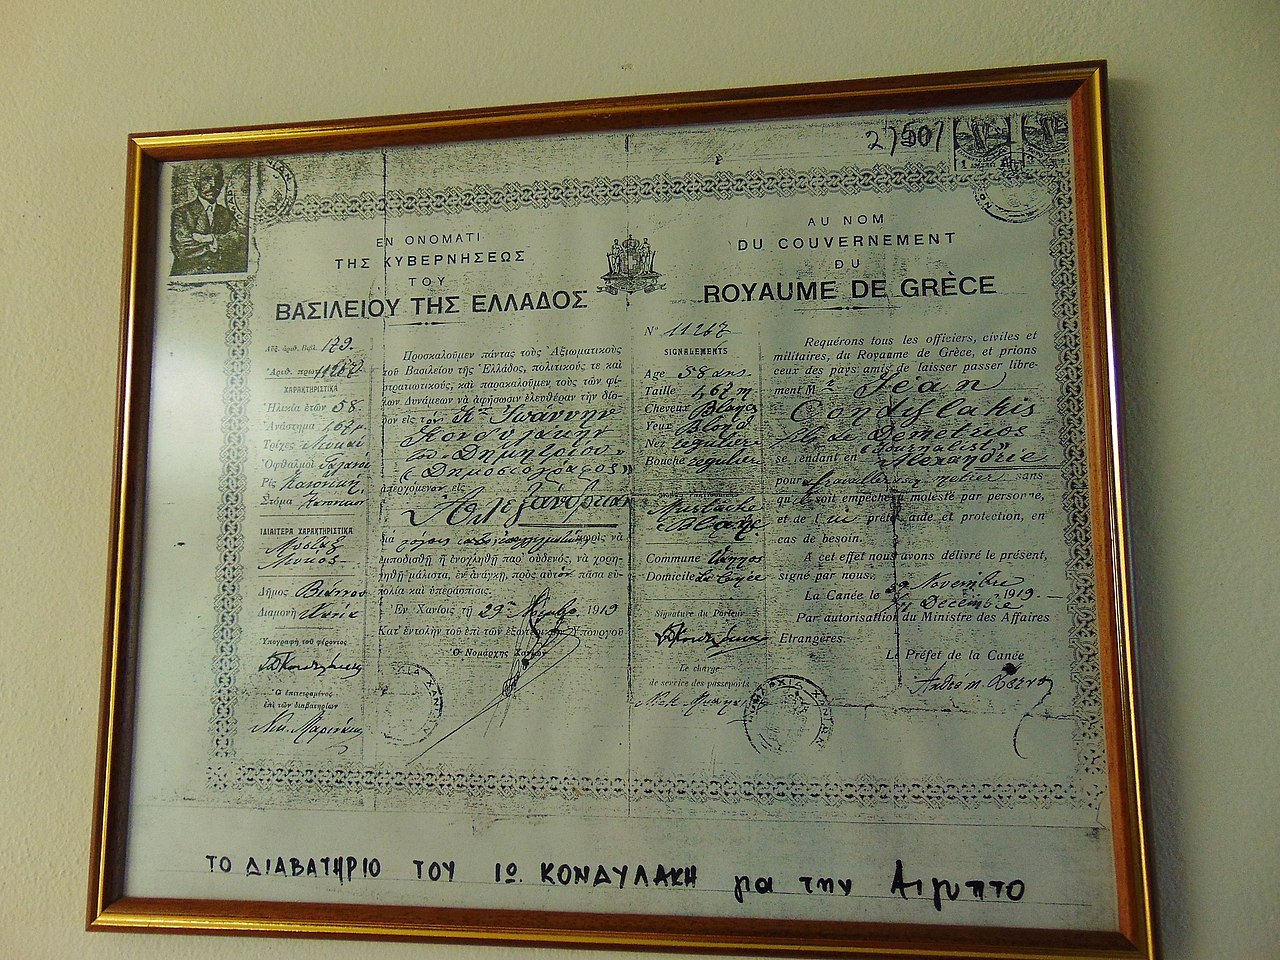 2)50/
ΕΝ ΟΝΟΜΑΤΙ
ΤΗΣ ΚΥΒΕΡΝΗΣΕΩΣ
ΤΟΥ
ΒΑΣΙΛΕΙΟΥ ΤΗΣ ΕΛΛΑΔΟΣ
Αὔξ. ἀριθ. Βιβλ. 179.
Ἀριθ. πρωτ. 11267
ΧΑΡΑΚΤΗΡΙΣΤΙΚΑ
Ἡλικία ἐτῶν 58.
Ἀνάστημα 1,67 μ.
Τρίχες Λευκαί
Ὀφθαλμοί Γαλανοί
Ρίς Κανονική
Στόμα Κανονικόν
ΙΔΙΑΙΤΕΡΑ ΧΑΡΑΚΤΗΡΙΣΤΙΚΑ
Μύσταξ
Λευκός
Δῆμος Βιάννου
Διαμονή Χανιά
Ὑπογραφή τοῦ φέροντος
Ὁ ἐπιτετραμμένος
ἐπί τῶν διαβατηρίων
Προσκαλοῦμεν πάντας τοὺς Ἀξιωματικοὺς
τοῦ Βασιλείου τῆς Ἑλλάδος, πολιτικούς τε καὶ
στρατιωτικούς, καὶ παρακαλοῦμεν τοὺς τῶν φί-
λων Δυνάμεων νὰ ἀφήσωσιν ἐλευθέραν τὴν δίο-
δον εἰς τὸν Κον Ἰωάννην
Κονδυλάκην
τοῦ Δημητρίου
(Δημοσιογράφος)
ἀπερχόμενον εἰς
Ἀλεξάνδρειαν
διὰ λόγους ἐπαγγέλματος χωρὶς νὰ
ἐμποδισθῇ ἢ ἐνοχληθῇ παρ' οὐδενός, νὰ χορη-
γηθῇ μάλιστα, ἐν ἀνάγκῃ, πρὸς αὐτὸν πᾶσα εὐ-
κολία καὶ ὑπεράσπισις.
Ἐν Χανίοις τῇ 29 1919
Κατ' ἐντολὴν τοῦ ἐπὶ τῶν ἐξωτερικῶν Ὑπουργοῦ
Ὁ Νομάρχης Χανίων
AU NOM
DU GOUVERNEMENT
DU
ROYAUME DE GRÈCE
No 11267
SIGNALEMENTS
Age 58 ans.
Taille 1,67 m
Cheveux Blancs
Yeux Blond
Nez regulière
Bouche regulière
Mustache
Blanche
Commune
Domicile La Canée
Signature du Porteur
Le chargé
de service des passeports
Requérons tous les officiers, civiles et
militaires, du Royaume de Grèce, et prions
ceux des pays amis de laisser passer libre-
ment Mr Jean
Condylakis
fils de Demetrios
"Journaliste"
se rendant en Alexandrie
pour travailler son métier sans
qu'il soit empêché ni molesté par personne,
et de lui prêter aide et protection, en
cas de besoin.
A cet effet nous avons délivré le présent,
signé par nous.
La Canée le 29 Novembre 1919.
Décembre
Par autorisation du Ministre des Affaires
Etrangères.
Le Préfet de la Canée
ΤΟ ΔΙΑΒΑΤΗΡΙΟ ΤΟΥ ΙΩ. ΚΟΝΔΥΛΑΚΗ για την Αίγυπτο